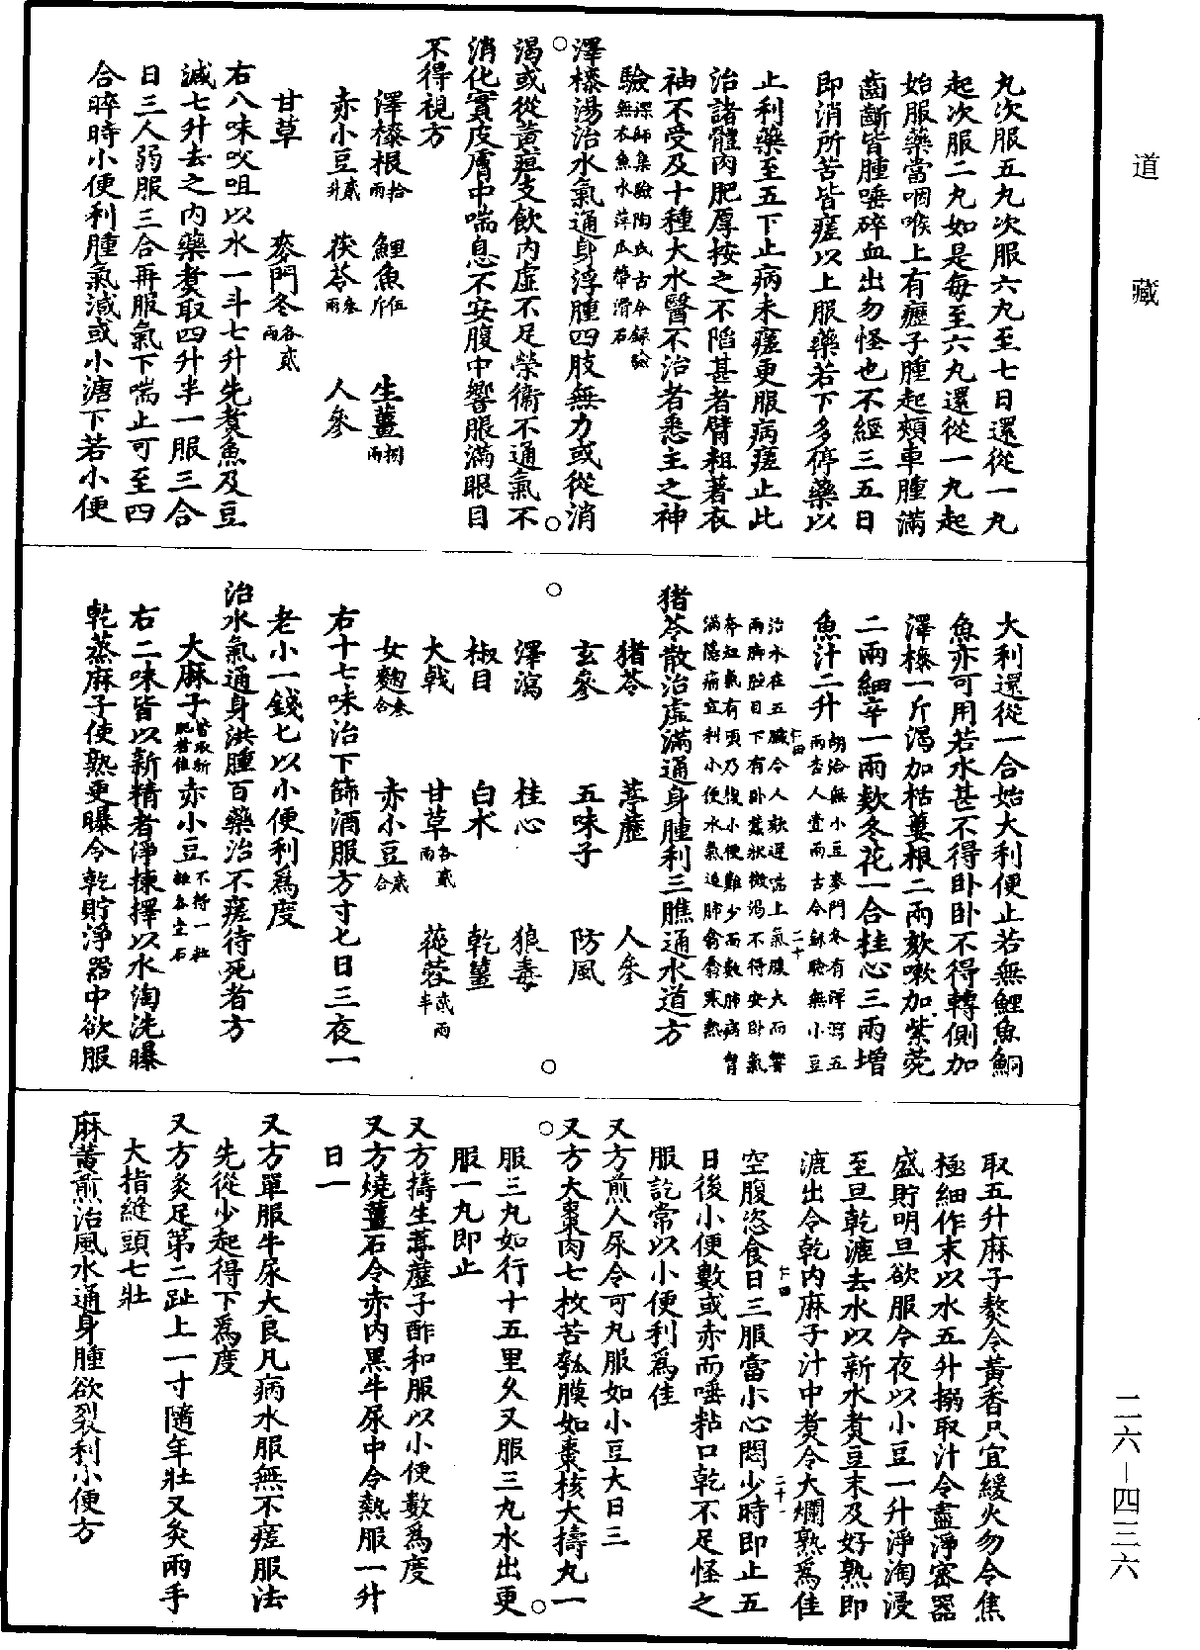 道藏
丸次服五丸次服六丸至七日還從一丸
起次服二丸如是每至六丸還從一丸起
始服藥當咽喉上有癧子腫起頰車腫滿
齒齗皆腫唾碎血出勿怪也不經三五日
即消所苦皆瘥以上服藥若下多停藥以
止利藥至五下止病未瘥更服病瘥止此
治諸體肉肥厚按之不陷甚者臂粗著衣
袖不受及十種大水醫不治者悉主之神
驗深師集驗陶氏古今錄驗
無木魚水萍瓜蒂滑石
澤漆湯治水氣通身浮腫四肢無力或從消
渴或從黃疸支飲內虛不足榮衛不通氣不
消化實皮膚中喘息不安腹中響脹滿眼目
不得視方
澤漆根拾兩 鯉魚伍斤 生薑捌兩
赤小豆貳升 茯苓叁兩 人參
甘草 麥門冬各貳兩
右八味㕮咀以水一斗七升先煑魚及豆
減七升去之內藥煑取四升半一服三合
日三人弱服三合再服氣下喘止可至四
合晬時小便利腫氣減或小溏下若小便
大利還從一合始大利便止若無鯉魚鮦
魚亦可用若水甚不得卧卧不得轉側加
澤漆一斤渴加栝蔞根二兩欬嗽加紫菀
二兩細辛一兩欬冬花一合桂心三兩增
魚汁二升胡洽無小豆麥門冬有澤瀉五
兩杏人壹兩古今録驗無小豆
仁四 二十
治水在五臟令人欬逆喘上氣腹大而響
兩脚腫目下有卧蠶狀微渴不得安卧氣
奔短氣有頃乃復小便難少而數肺病胷
滿隱痛宜利小便水氣迫肺翕翕寒熱
猪苓散治虛滿通身腫利三膲通水道方
猪苓 葶藶 人參
玄參 五味子 防風
澤瀉 桂心 狼毒
椒目 白朮 乾薑
大戟 甘草各貳兩 蓯蓉貳兩半
女麴叁合 赤小豆貳合
右十七味治下篩酒服方寸匕日三夜一
老小一錢匕以小便利爲度
治水氣通身洪腫百藥治不瘥待死者方
大麻子皆取新肥者佳 赤小豆不得一粒雜各壹石
右二味皆以新精者淨揀擇以水淘洗曝
乾蒸麻子使熟更曝令乾貯淨器中欲服
取五升麻子熬令黃香只宜緩火勿令焦
極細作末以水五升搦取汁令盡淨密器
盛貯明旦欲服今夜以小豆一升淨淘浸
至旦乾漉去水以新水煑豆末及好熟即
漉出令乾內麻子汁中煑令大爛熟爲佳
仁四 二十一
空腹恣食日三服當小心悶少時即止五
日後小便數或赤而唾粘口乾不足怪之
服訖常以小便利爲佳
又方煎人尿令可丸服如小豆大日三
又方大棗肉七枚苦瓠膜如棗核大擣丸一
服三丸如行十五里久又服三丸水出更
服一丸即止
又方擣生葶藶子酢和服以小便數爲度
又方燒薑石令赤內黑牛尿中令熱服一升
日一
又方單服牛尿大良凡病水服無不瘥服法
先從少起得下爲度
又方灸足第二趾上一寸隨年壯又灸兩手
大指縫頭七壯
麻黃煎治風水通身腫欲裂利小便方
二六—四三六